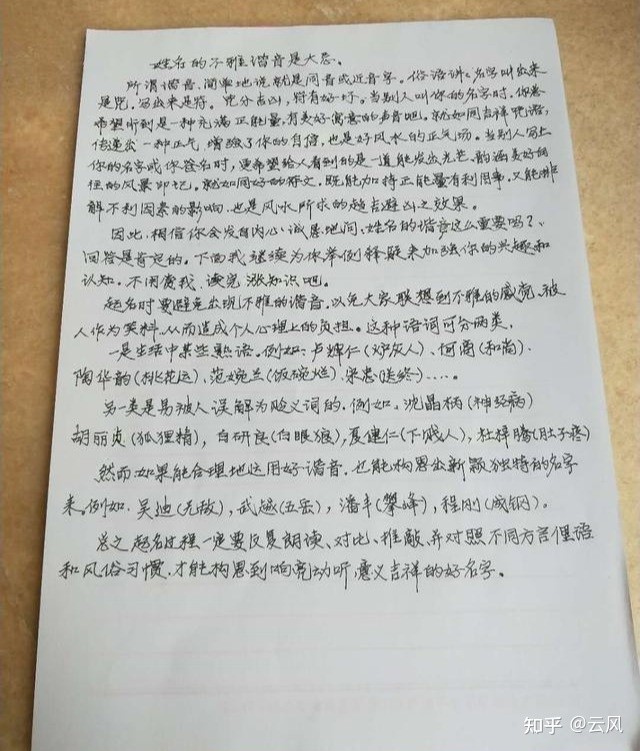 姓名的不雅谐音是大忌。
所谓谐音,简单地说就是同音或近音字。俗语讲:名字叫出来
是咒,写出来是符。咒分吉凶,符有好坏。当别人叫你的名字时,你总
希望听到是一种充满正能量,有美好寓意的声音吧。就如同吉祥咒语,
传递出一种正气,增强了你的自信,也是好风水的正气场。当别人写上
你的名字或你签名时,更希望给人看到的是一道能发出光芒、韵涵美好自
信的风景印记。就如同好的符文,既能加持正能量有利因事,又能排
解不利因素的影响。也是风水所求的趋吉避凶之效果。
因此,相信你会发自内心、诚恳地问,姓名的谐音这么重要吗?
回答是肯定的。下面我继续为你举例释疑来加强你的兴趣和
认知。不闲费我,读完涨知识吧。
起名时要避免出现不雅的谐音,以免大家联想到不雅的感觉,被
人作为笑料,从而造成个人心理上的负担。这种语词可分两类,
一是生活中某些熟语。例如:卢辉仁(炉灰人)、何尚(和尚)、
陶华韵(桃花运)、范婉兰(饭碗烂)、宋忠(送终)……。
另一类是易被人误解为贬义词的,例如,沈晶柄(神经病)
胡丽贞(狐狸精),白研良(白眼狼),夏健仁(下贱人),杜梓腾(肚子疼)
然而,如果能合理地运用好谐音,也能构思出新颖独特的名字
来,例如,吴迪(无敌),武越(五岳),潘丰(攀峰),程刚(成钢)。
总之,起名过程一定要反复朗读、对比、推敲,并对照不同方言俚语
和风俗习惯,才能构思到响亮动听,意义吉祥的好名字。
知乎 @云风